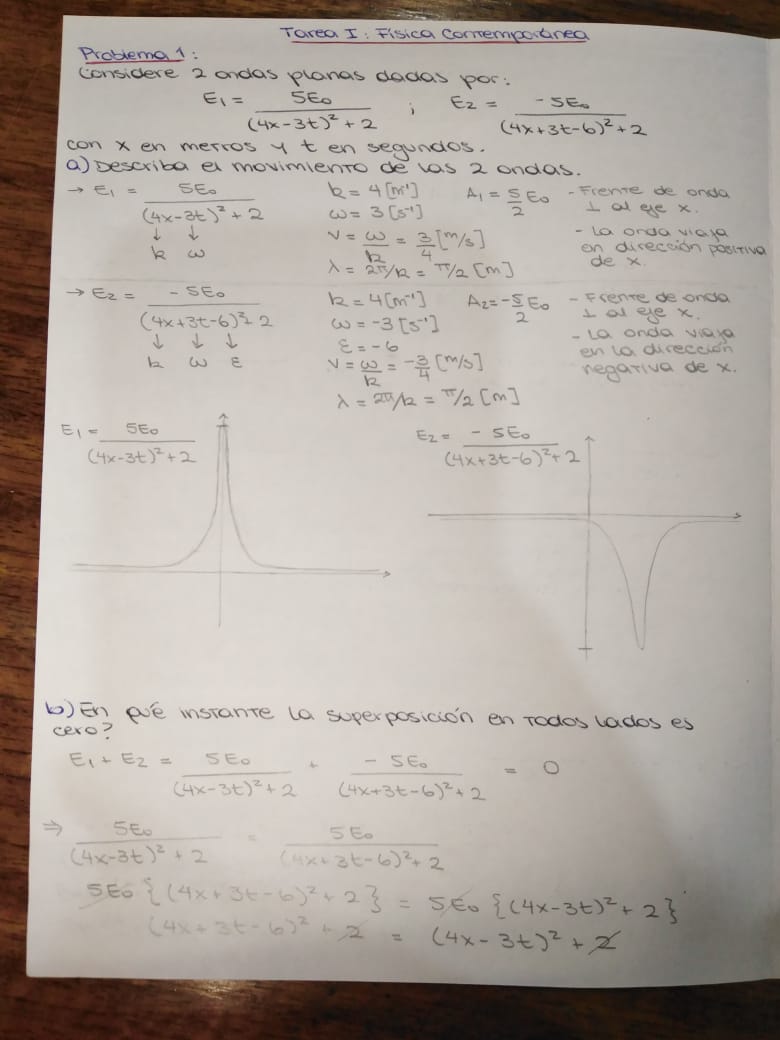 Tarea I: Física Contemporánea
Problema 1:
Considere 2 ondas planas dadas por:
E₁ = 5E₀ / (4x-3t)² + 2 ; E₂ = -5E₀ / (4x+3t-6)² + 2
con x en metros y t en segundos.
a) Describa el movimiento de las 2 ondas.
→ E₁ = 5E₀ / (4x-3t)² + 2
↓ ↓
k ω
k = 4 [m⁻¹]
ω = 3 [s⁻¹]
v = ω/k = 3/4 [m/s]
λ = 2π/k = π/2 [m]
A₁ = 5/2 E₀
- Frente de onda
⊥ al eje x.
- La onda viaja
en dirección positiva
de x.
→ E₂ = -5E₀ / (4x+3t-6)² + 2
↓ ↓ ↓
k ω ε
k = 4 [m⁻¹]
ω = -3 [s⁻¹]
ε = -6
v = ω/k = -3/4 [m/s]
λ = 2π/k = π/2 [m]
A₂ = -5/2 E₀
- Frente de onda
⊥ al eje x.
- La onda viaja
en la dirección
negativa de x.
E₁ = 5E₀ / (4x-3t)² + 2
E₂ = -5E₀ / (4x+3t-6)² + 2
b) En qué instante la superposición en todos lados es
cero?
E₁ + E₂ = 5E₀ / (4x-3t)² + 2 + -5E₀ / (4x+3t-6)² + 2 = 0
⇒ 5E₀ / (4x-3t)² + 2 = 5E₀ / (4x+3t-6)² + 2
5E₀ {(4x+3t-6)² + 2} = 5E₀ {(4x-3t)² + 2}
(4x+3t-6)² + 2 = (4x-3t)² + 2